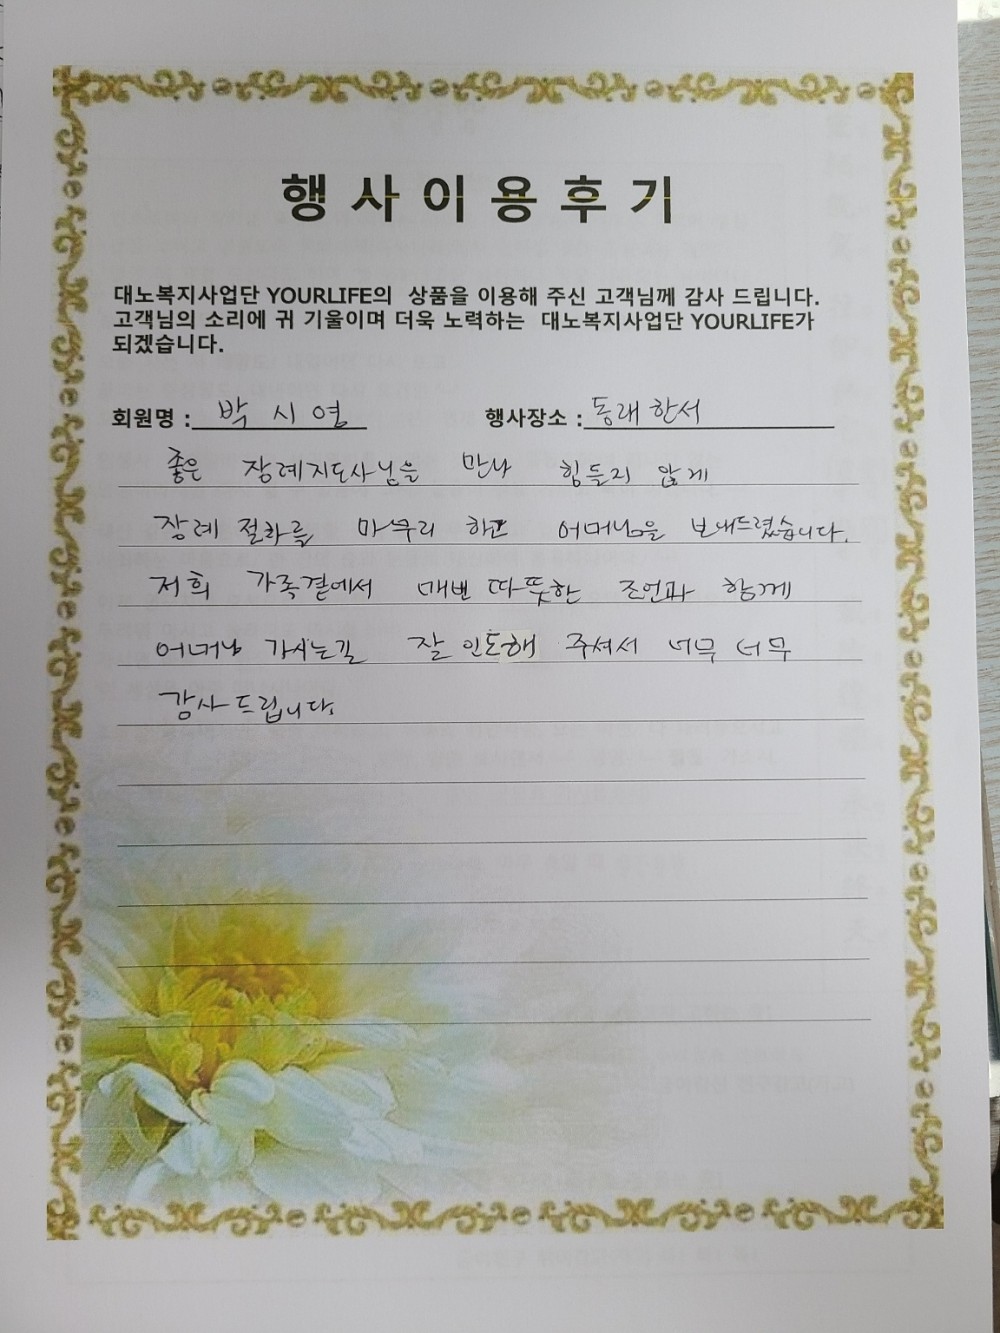 행사이용후기
대노복지사업단 YOURLIFE의 상품을 이용해 주신 고객님께 감사 드립니다.
고객님의 소리에 귀 기울이며 더욱 노력하는 대노복지사업단 YOURLIFE가
되겠습니다.
회원명 : 박시영 행사장소 : 동래한서
좋은 장례지도사님을 만나 힘들지 않게
장례 절차를 마무리 하고 어머님을 보내드렸습니다.
저희 가족곁에서 매번 따뜻한 조언과 함께
어머님 가시는길 잘 인도해 주셔서 너무 너무
감사드립니다.